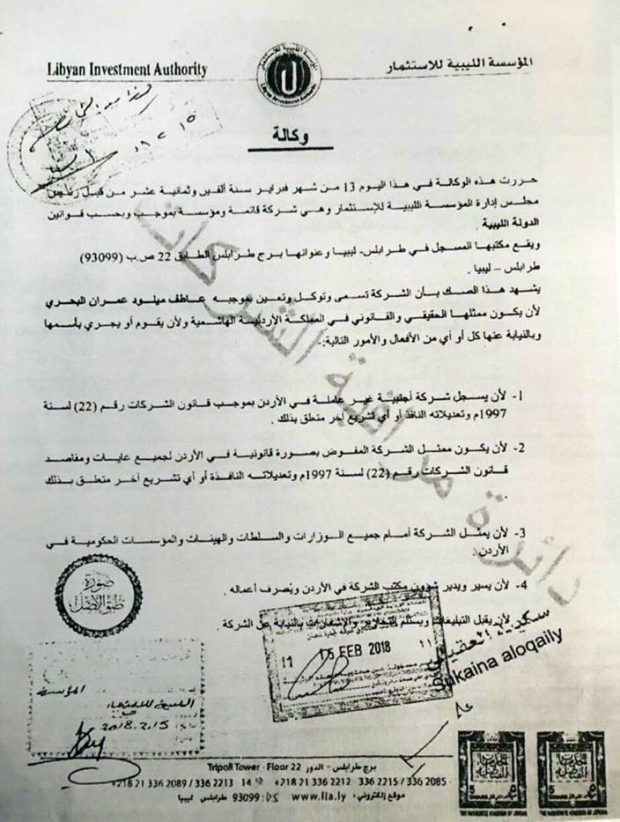 Libyan Investment Authority
المؤسسة الليبية للاستثمار
Libyan Investment Authority
وكالة
حررت هذه الوكالة في هذا اليوم 13 من شهر فبراير سنة ألفين وثمانية عشر من قبل رئيس
مجلس إدارة المؤسسة الليبية للإستثمار وهي شركة قائمة ومؤسسة بموجب وبحسب قوانين
الدولة الليبية .
ويقع مكتبها المسجل في طرابلس- ليبيا وعنوانها برج طرابلس الطابق 22 ص.ب (93099)
طرابلس – ليبيا .
يشهد هذا الصك بأن الشركة تسمى وتوكل وتعين بموجبه عاطف ميلود عمران البحري
لأن يكون ممثلها الحقيقي والقانوني في المملكة الأردنية الهاشمية ولأن يقوم أو يجري بأسمها
وبالنيابة عنها كل أو أي من الأفعال والأمور التالية:-
1- لأن يسجل شركة أجنبية غير عاملة في الأردن بموجب قانون الشركات رقم (22) لسنة
1997م وتعديلاته النافذ أو أي تشريع أخر متعلق بذلك .
2- لأن يكون ممثل الشركة المفوض بصورة قانونية في الأردن لجميع غايات ومقاصد
قانون الشركات رقم (22) لسنة 1997م وتعديلاته النافذة أو أي تشريع أخر متعلق بذلك
.
3- لأن يمثل الشركة أمام جميع الوزارات والسلطات والهيئات والمؤسسات الحكومية في
الأردن .
4- لأن يسير ويدير شؤون مكتب الشركة في الأردن ويصرف أعماله .
لأن يقبل التبليغات ويستلم والإشعارات بالنيابة عن الشركة
دائرة مراقبة الشركات
صورة
طبق الأصل
15 FEB 2018
سكينة العقيلي
Sukaina aloqaily
المؤسسة
الليبية للاستثمار
2018.2.15
Tripoli Tower - Floor 22 برج طرابلس - الدور
+218 21 336 2089 / 336 2213 +218 21 336 2212 336 2215 / 336 2085
موقع إلكتروني: www.lia.ly 93099 طرابلس ليبيا
5 5
THE HASHEMITE KINGDOM OF JORDAN
THE HASHEMITE KINGDOM OF JORDAN